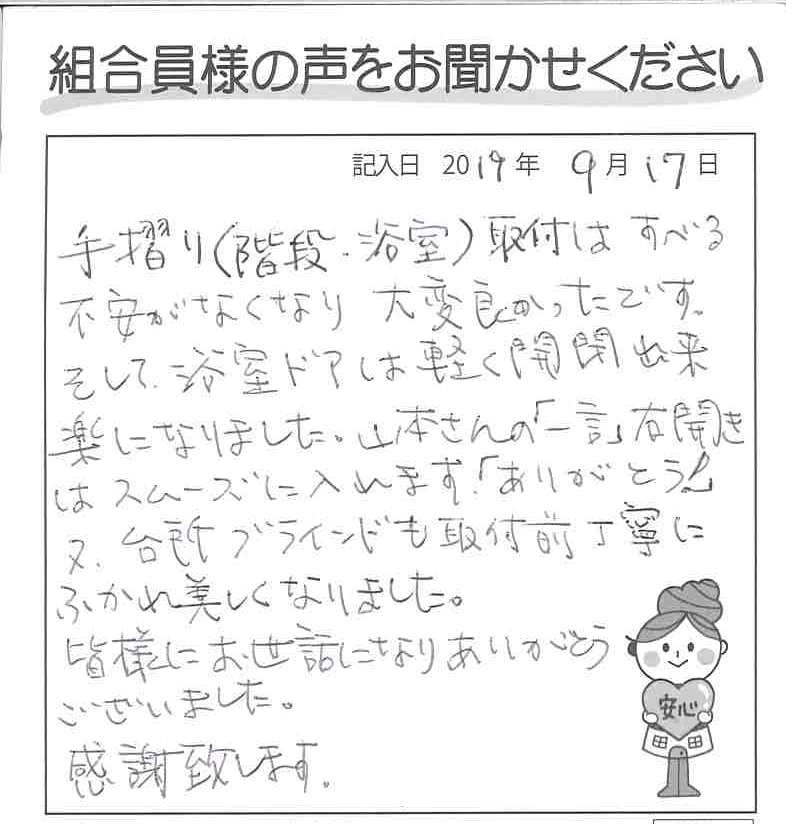 組合員様の声をお聞かせください
記入日 2019年 9月17日
手摺り(階段・浴室)取付は すべる
不安がなくなり 大変良かったです。
そして、浴室ドアは軽く開閉出来
楽になりました。山本さんの「一言」右開き
はスムーズに入れます。「ありがとう!」
又、台所ブラインドも取付前丁寧に
ふかれ美しくなりました。
皆様にお世話になりありがとう
ございました。
感謝致します。
安心